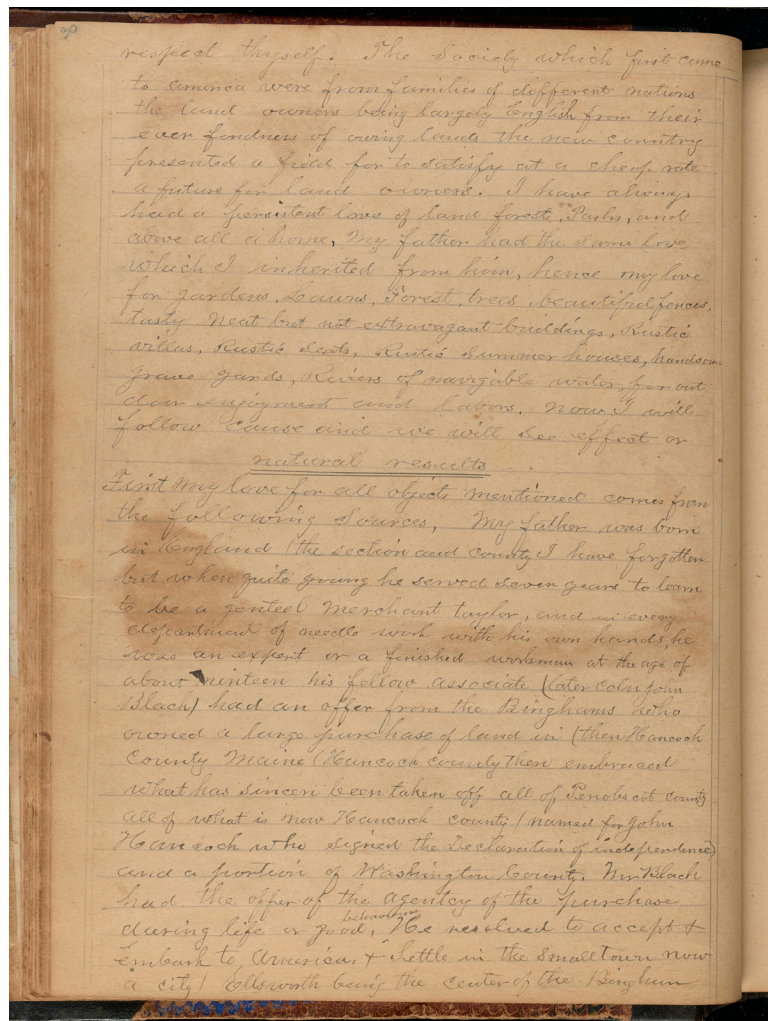 30
respect thyself. The Society which first came
to america were from families of different nations
the land owners being largely English from their
ever fondness of owing lands the new country
presented a field for to satisfy at a cheap rate
a future for land owners. I have always
had a persistent love of land forests, Parks, and
above all a home, My father had the same love
which I inherited from him, hence my love
for gardens, Lawns, Forest trees, beautiful fences,
tasty Neat but not extravagant buildings, Rustic
villas, Rustic Seats, Rustic Summer houses, handsome
grave yards, Rivers of navigable water, for out
door enjoyment and labors. Now I will
follow cause and we will see effect or
natural results
First My love for all objects mentioned comes from
the following Sources, My father was born
in England (the section and county I have forgotten
but when quite young he served seven years to learn
to be a genteel Merchant taylor, and in every
department of needle work with his own hands, he
was an expert or a finished workman at the age of
about nineteen his fellow associate (later Coln John
Black) had an offer from the Binghams who
owned a large purchase of land in (then Hancock
County Maine (Hancock county then embraced
what has sincen been taken off all of Penobscot county
all of what is now Hancock county (named for John
Hancock who signed the Declaration of independence)
and a portion of Washington County. Mr Black
had the offer of the agentcy of the purchase
during life or good, He resolved to accept &
behaviour
embark to America, & settle in the small town now
a city) Ellsworth being the center of the Bingham